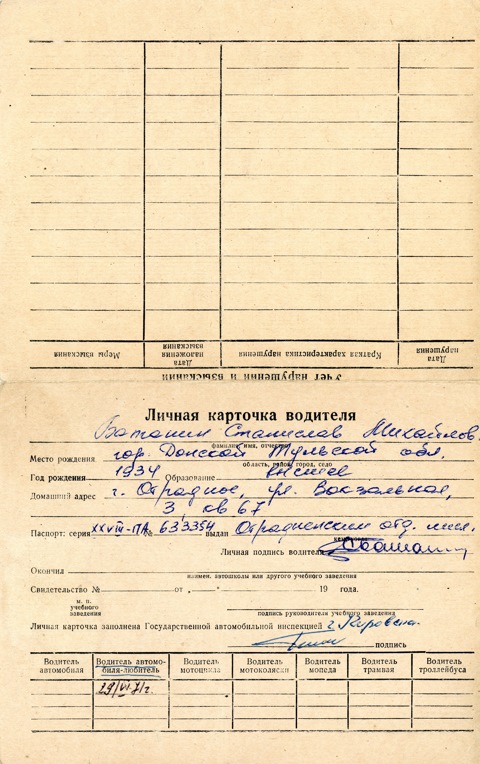 Учет нарушений и взысканий
Дата нарушения
Краткая характеристика нарушения
Дата наложения взыскания
Меры взыскания
Личная карточка водителя
Батанин Станислав Михайлов.
фамилия, имя, отчество
Место рождения гор. Донской Тульской обл.
область, район, город, село
Год рождения 1934 Образование высшее
Домашний адрес г. Отрадное, ул. Вокзальная,
3 кв 67
Паспорт: серия XXVIII-ПА № 633354 выдан Отрадненским отд. мил.
кем
Личная подпись водителя
Окончил
наимен. автошколы или другого учебного заведения
Свидетельство № от „ “ 19 года.
м. п.
учебного
заведения
подпись руководителя учебного заведения
Личная карточка заполнена Государственной автомобильной инспекцией г. Кировска
подпись
Водитель автомобиля
Водитель автомо-
биля-любитель
Водитель мотоцикла
Водитель мотоколяски
Водитель мопеда
Водитель трамвая
Водитель троллейбуса
29/VI-71г.